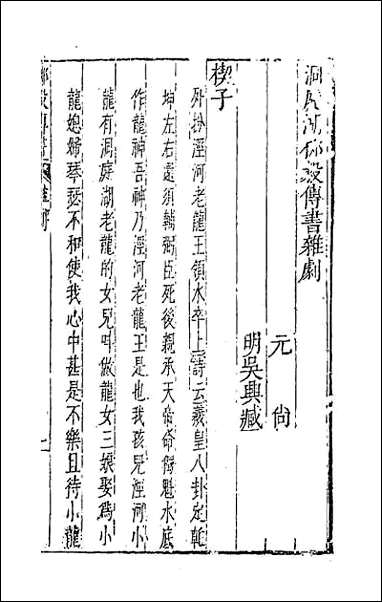 洞庭湖柳毅傳書雜劇
元　尚
明吳興臧
楔子
外扮涇河老龍王領水卒上詩云羲皇八卦定乾
坤左右還須輔弼臣死後親承天帝命獨魁水底
作龍神吾神乃涇河老龍王是也我孩兒涇河小
龍有洞庭湖老龍的女兒叫做龍女三娘娶爲小
龍媳婦琴瑟不和使我心中甚是不樂且待小龍
柳毅傳書　雜劇
一